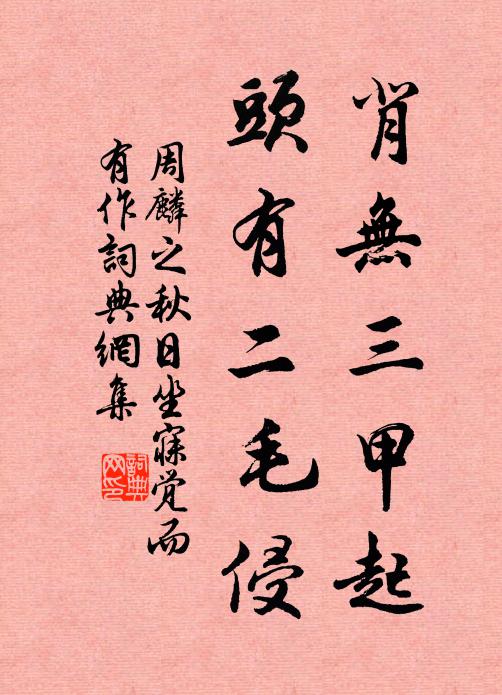 背無三甲起
頭有二毛侵
周麟之秋日坐寐觉而
有作詞典網集
詞典
网印